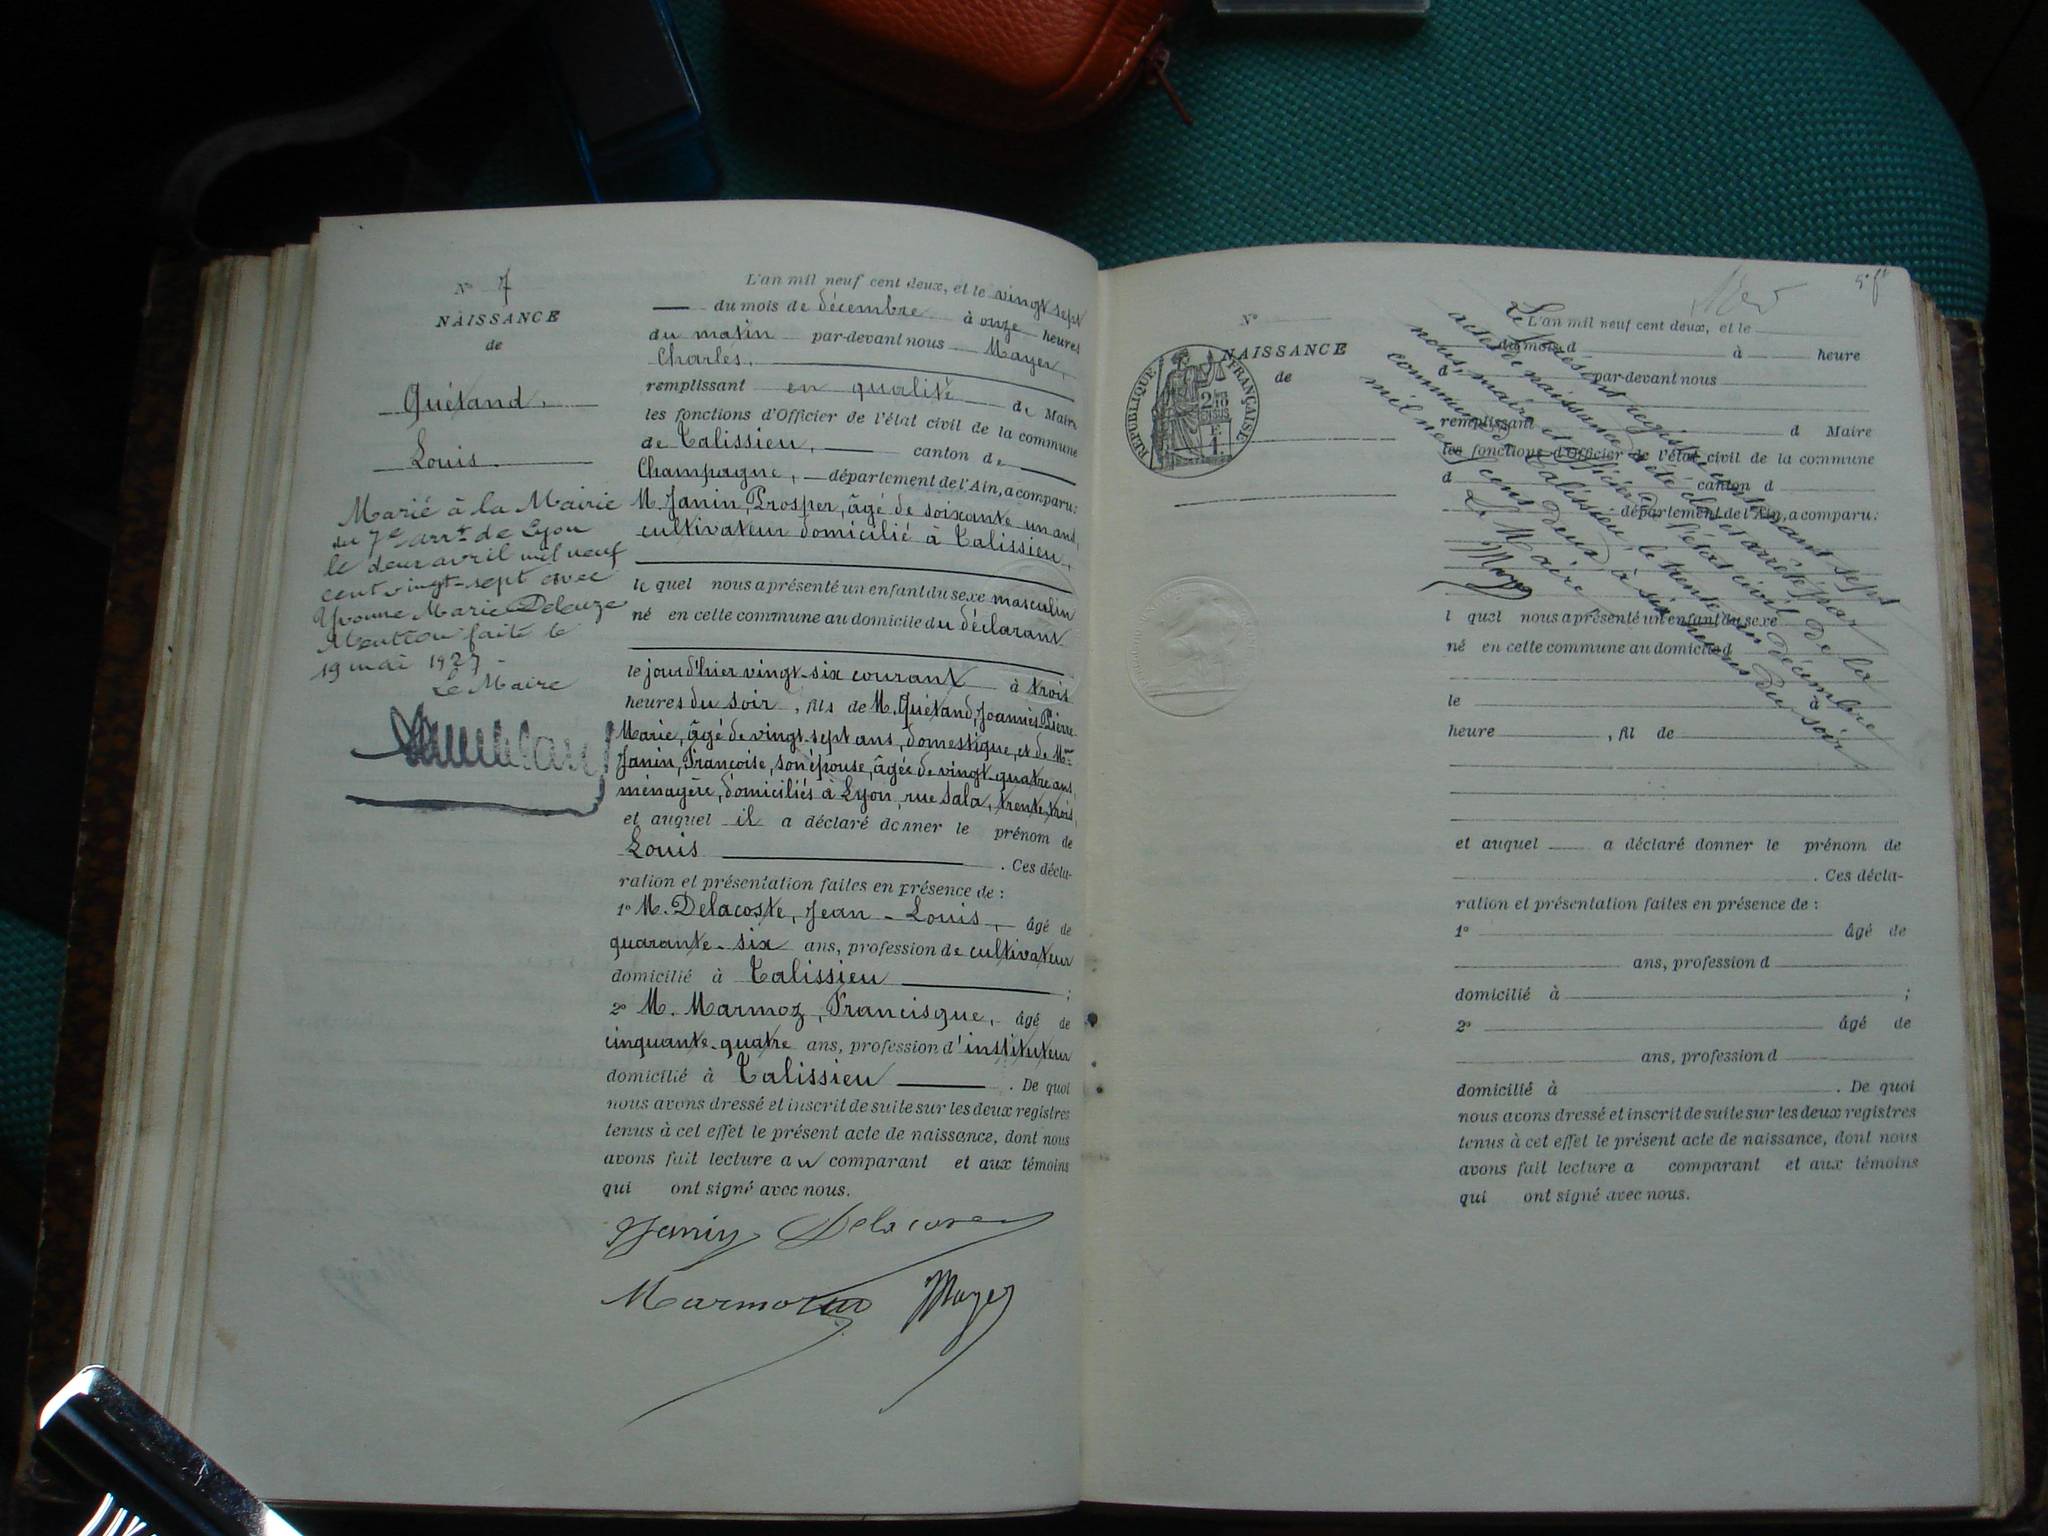 N° 7
NAISSANCE
de
Quétand,
Louis.
Marié à la Mairie
du 7e arrt de Lyon
le deux avril mil neuf
cent vingt-sept avec
Yvonne Marie Deleuze
Mention faite le
19 mai 1927.
Le Maire
L'an mil neuf cent deux, et le vingt sept
du mois de décembre à onze heures
du matin par-devant nous Mayer,
Charles.
remplissant en qualité de Maire
les fonctions d'Officier de l'état civil de la commune
de Talissieu, canton de
Champagne, département de l'Ain, a comparu:
M. Janin, Prosper, âgé de soixante un ans,
cultivateur domicilié à Talissieu,
le quel nous a présenté un enfant du sexe masculin
né en cette commune au domicile du déclarant
le jour d'hier vingt-six courant à trois
heures du soir, fils de M. Quétand, Joannès Pierre
Marie, âgé de vingt-sept ans, domestique, et de Mme
Janin, Françoise, son épouse, âgée de vingt-quatre ans,
ménagère, domiciliés à Lyon, rue Sala, trente-trois,
et auquel il a déclaré donner le prénom de
Louis. Ces décla-
ration et présentation faites en présence de :
1° M. Delacoste, Jean-Louis, âgé de
quarante-six ans, profession de cultivateur
domicilié à Talissieu ;
2° M. Marmoz, Francisque, âgé de
cinquante-quatre ans, profession d'instituteur
domicilié à Talissieu. De quoi
nous avons dressé et inscrit de suite sur les deux registres
tenus à cet effet le présent acte de naissance, dont nous
avons fait lecture au comparant et aux témoins
qui ont signé avec nous.
Janin Delacoste
Marmoz Mayer
5e ft
N°
NAISSANCE
de
RÉPUBLIQUE FRANÇAISE
2/10 EN SUS
F.
1.
Le présent registre contenant sept
actes de naissance a été clos et arrêté par
nous, maire et officier de l'état civil de la
commune de Talissieu, le trente un décembre
mil neuf cent deux à six heures du soir
Le Maire
Mayer
L'an mil neuf cent deux, et le
du mois d à heure
d par-devant nous
remplissant d Maire
les fonctions d'Officier de l'état civil de la commune
d canton d
département de l'Ain, a comparu:
l quel nous a présenté un enfant du sexe
né en cette commune au domicile d
le à
heure , fil de
et auquel a déclaré donner le prénom de
. Ces décla-
ration et présentation faites en présence de :
1° âgé de
ans, profession d
domicilié à ;
2° âgé de
ans, profession d
domicilié à . De quoi
nous avons dressé et inscrit de suite sur les deux registres
tenus à cet effet le présent acte de naissance, dont nous
avons fait lecture a comparant et aux témoins
qui ont signé avec nous.